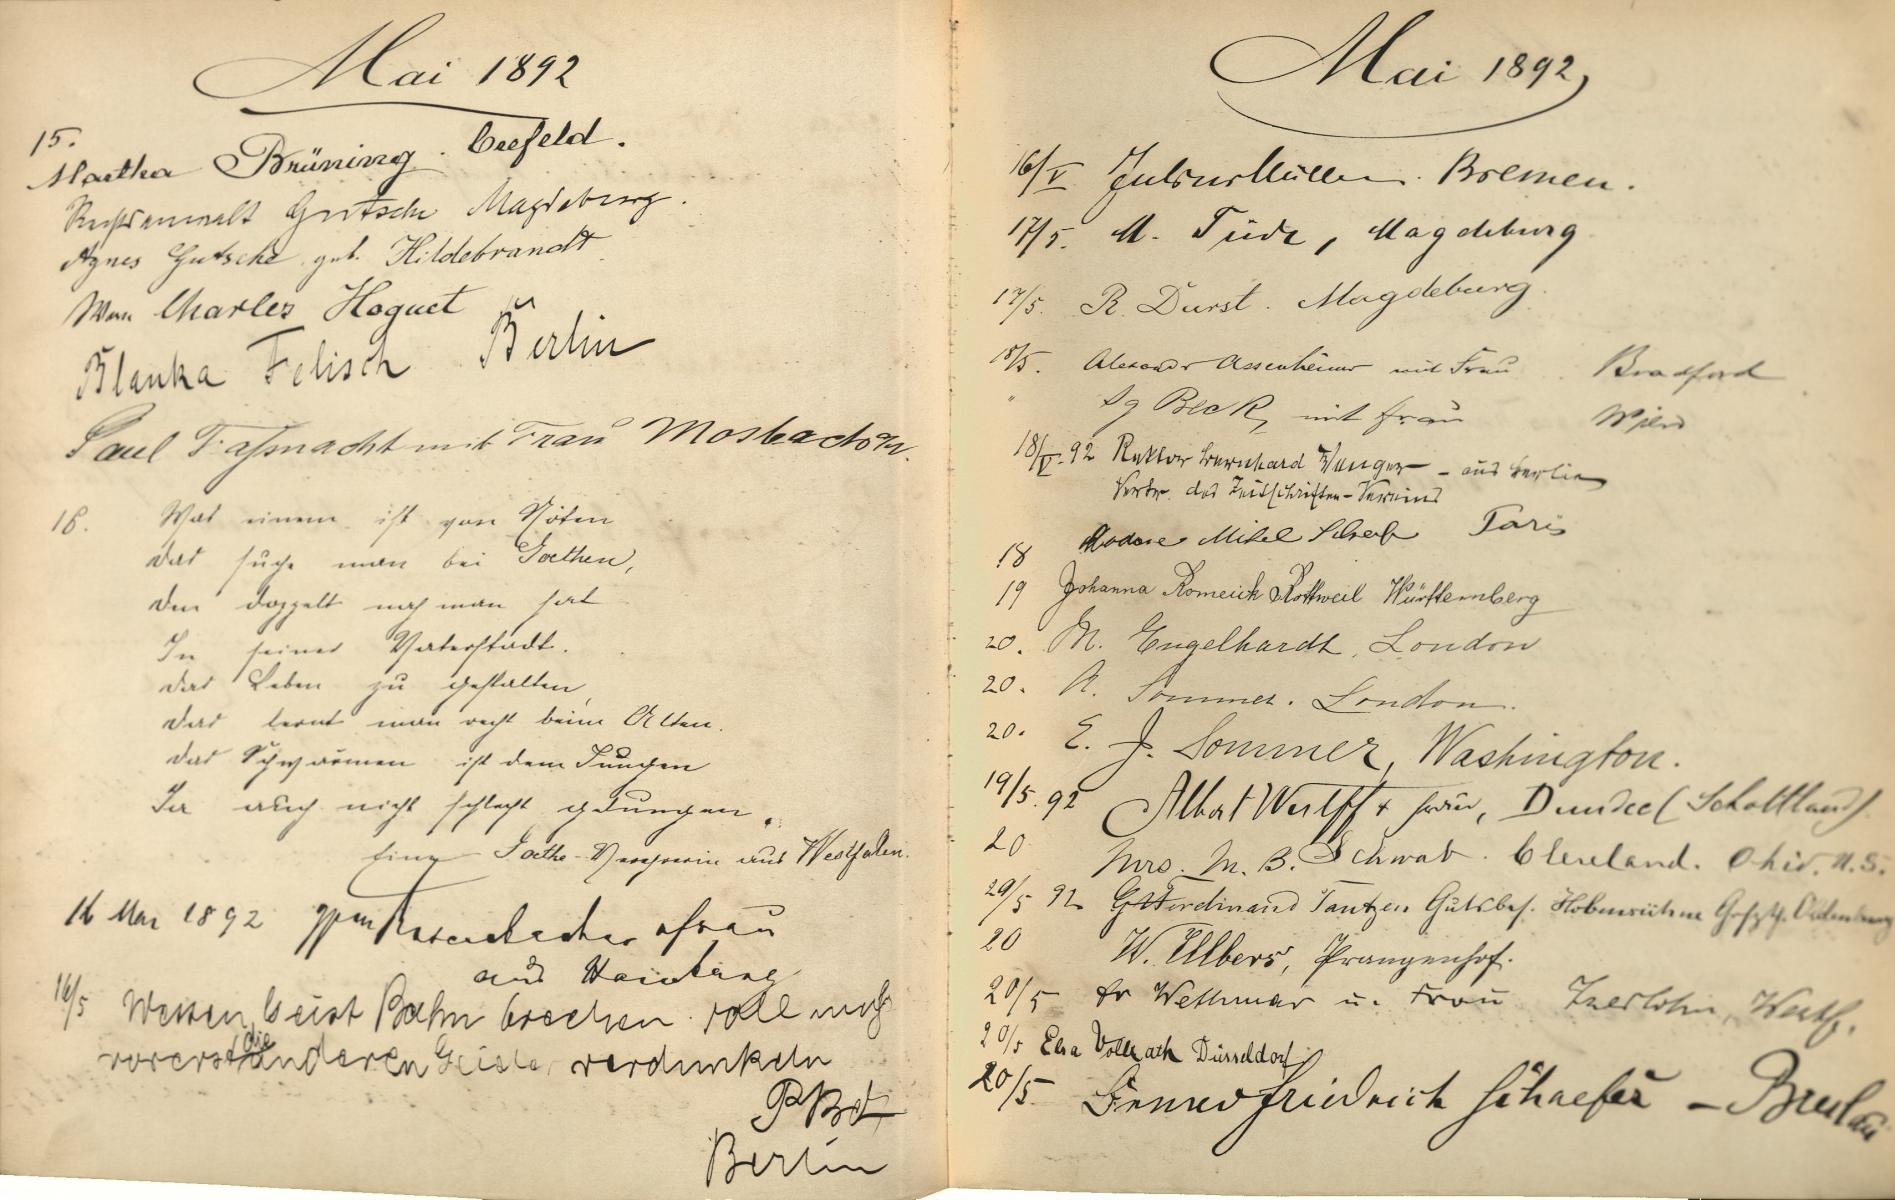 Mai 1892
15.
Martha Brüning. Crefeld.
Rechtsanwalt Gutsche Magdeburg.
Agnes Gutsche geb. Hildebrandt
Charles Hoguet
Blanka Felisch Berlin
Paul Faßnacht mit Frau Mosbach
16. Was einem ist von Nöten
das suche man bei Goethen,
den doppelt noch man hat
In seiner Vaterstadt.
das Leben zu gestalten,
das lernt man recht beim Alten.
das Schwärmen ist dem Jungen
Ja auch nicht schlecht gelungen.
Eine Goethe-Verehrerin aus Westfalen.
16 Mai 1892 Frau
aus Hamburg
16/5 Wessen Geist Bahn brechen soll muß
vorerst die anderen Geister verdunkeln
Berlin
Mai 1892
16/V Julius Müller. Bremen.
17/5. M. Tüde, Magdeburg
17/5. R. Durst. Magdeburg.
18/5. Alexander Assenheimer mit Frau Bradford
" Beck, mit Frau Wien
18/V. 92 Rektor Bernhard - aus Berlin
Vertr. des Zeitschriften-Vereins
18 Paris
19 Johanna Romeick Rottweil Württemberg
20. M. Engelhardt, London
20. A. Sommer. London.
20. E. J. Sommer, Washington.
19/5. 92 Albert Wulff + Frau, Dundee (Schottland)
20 Mrs. M. B. Schwab. Cleveland. Ohio. U.S.
20/5 92 Ferdinand Tantzen Gutsbes. Oldenburg
20 W. Ellbers, Prangenhof.
20/5 Dr Wethmar u. Frau Iserlohn, Westf.
20/5 Elsa Vollrath Düsseldorf
20/5 Friedrich Schaefer - Breslau